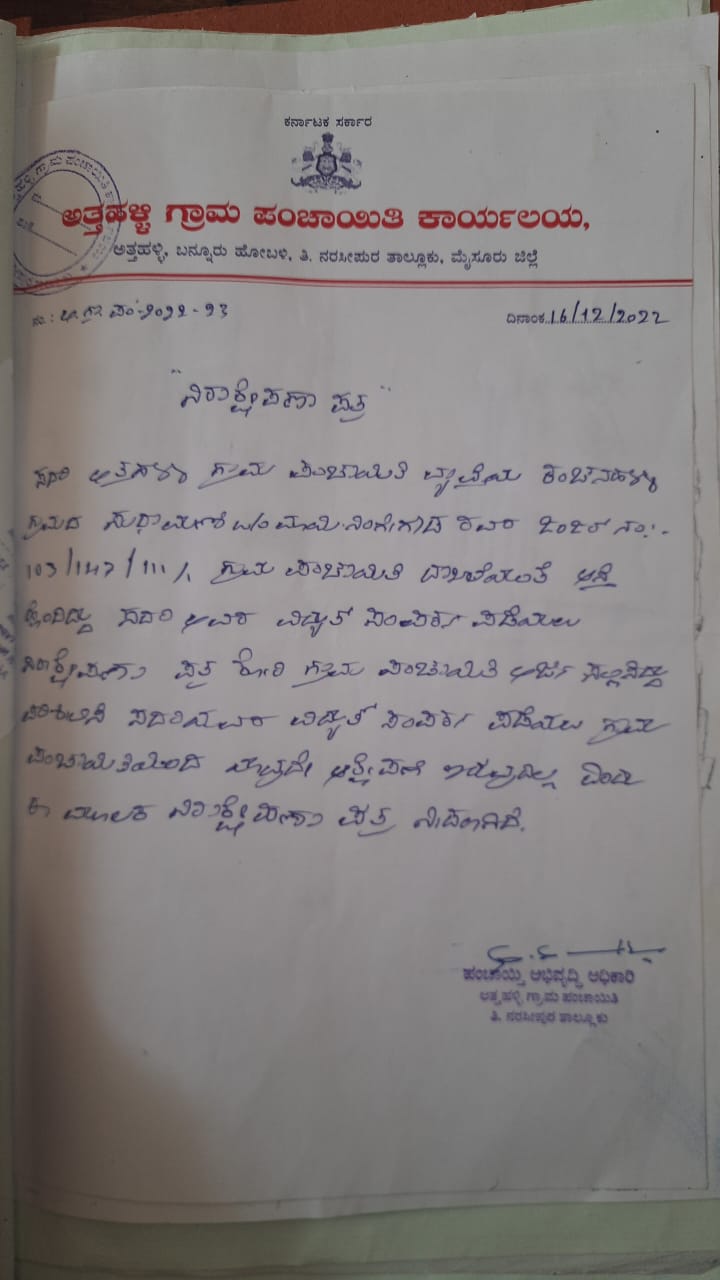 ಕರ್ನಾಟಕ ಸರ್ಕಾರ
ಅತ್ತಹಳ್ಳಿ ಗ್ರಾಮ ಪಂಚಾಯಿತಿ ಕಾರ್ಯಲಯ,
ಅತ್ತಹಳ್ಳಿ, ಬನ್ನೂರು ಹೋಬಳಿ, ತಿ. ನರಸೀಪುರ ತಾಲ್ಲೂಕು, ಮೈಸೂರು ಜಿಲ್ಲೆ
ಸಂ.: ಅ.ಗ್ರಾ.ಪಂ:೨೦೨೨-೨೩
ದಿನಾಂಕ 16/12/2022
"ನಿರಾಕ್ಷೇಪಣಾ ಪತ್ರ"
ಸದರಿ ಅತ್ತಹಳ್ಳಿ ಗ್ರಾಮ ಪಂಚಾಯಿತಿ ವ್ಯಾಪ್ತಿಯ ಕಂಚನಹಳ್ಳಿ
ಗ್ರಾಮದ
103/147/111/1 ಗ್ರಾಮ ಪಂಚಾಯಿತಿ ದಾಖಲೆಯಂತೆ ಆಸ್ತಿ
ಹೊಂದಿದ್ದು ಸದರಿ ಅವರ ವಿದ್ಯುತ್ ಸಂಪರ್ಕ ಪಡೆಯಲು
ನಿರಾಕ್ಷೇಪಣಾ ಪತ್ರ ಕೋರಿ ಗ್ರಾಮ ಪಂಚಾಯಿತಿ ಅರ್ಜಿ ಸಲ್ಲಿಸಿದ್ದು
ಪರಿಶೀಲಿಸಿ ಸದರಿಯವರ ವಿದ್ಯುತ್ ಸಂಪರ್ಕ ಪಡೆಯಲು ಗ್ರಾಮ
ಪಂಚಾಯಿತಿಯಿಂದ ಯಾವುದೇ ಆಕ್ಷೇಪಣೆ ಇರುವುದಿಲ್ಲ ಎಂದು
ಈ ಮೂಲಕ ನಿರಾಕ್ಷೇಪಣಾ ಪತ್ರ ನೀಡಲಾಗಿದೆ.
ಪಂಚಾಯ್ತಿ ಅಭಿವೃದ್ಧಿ ಅಧಿಕಾರಿ
ಅತ್ತಹಳ್ಳಿ ಗ್ರಾಮ ಪಂಚಾಯಿತಿ
ತಿ. ನರಸೀಪುರ ತಾಲ್ಲೂಕು